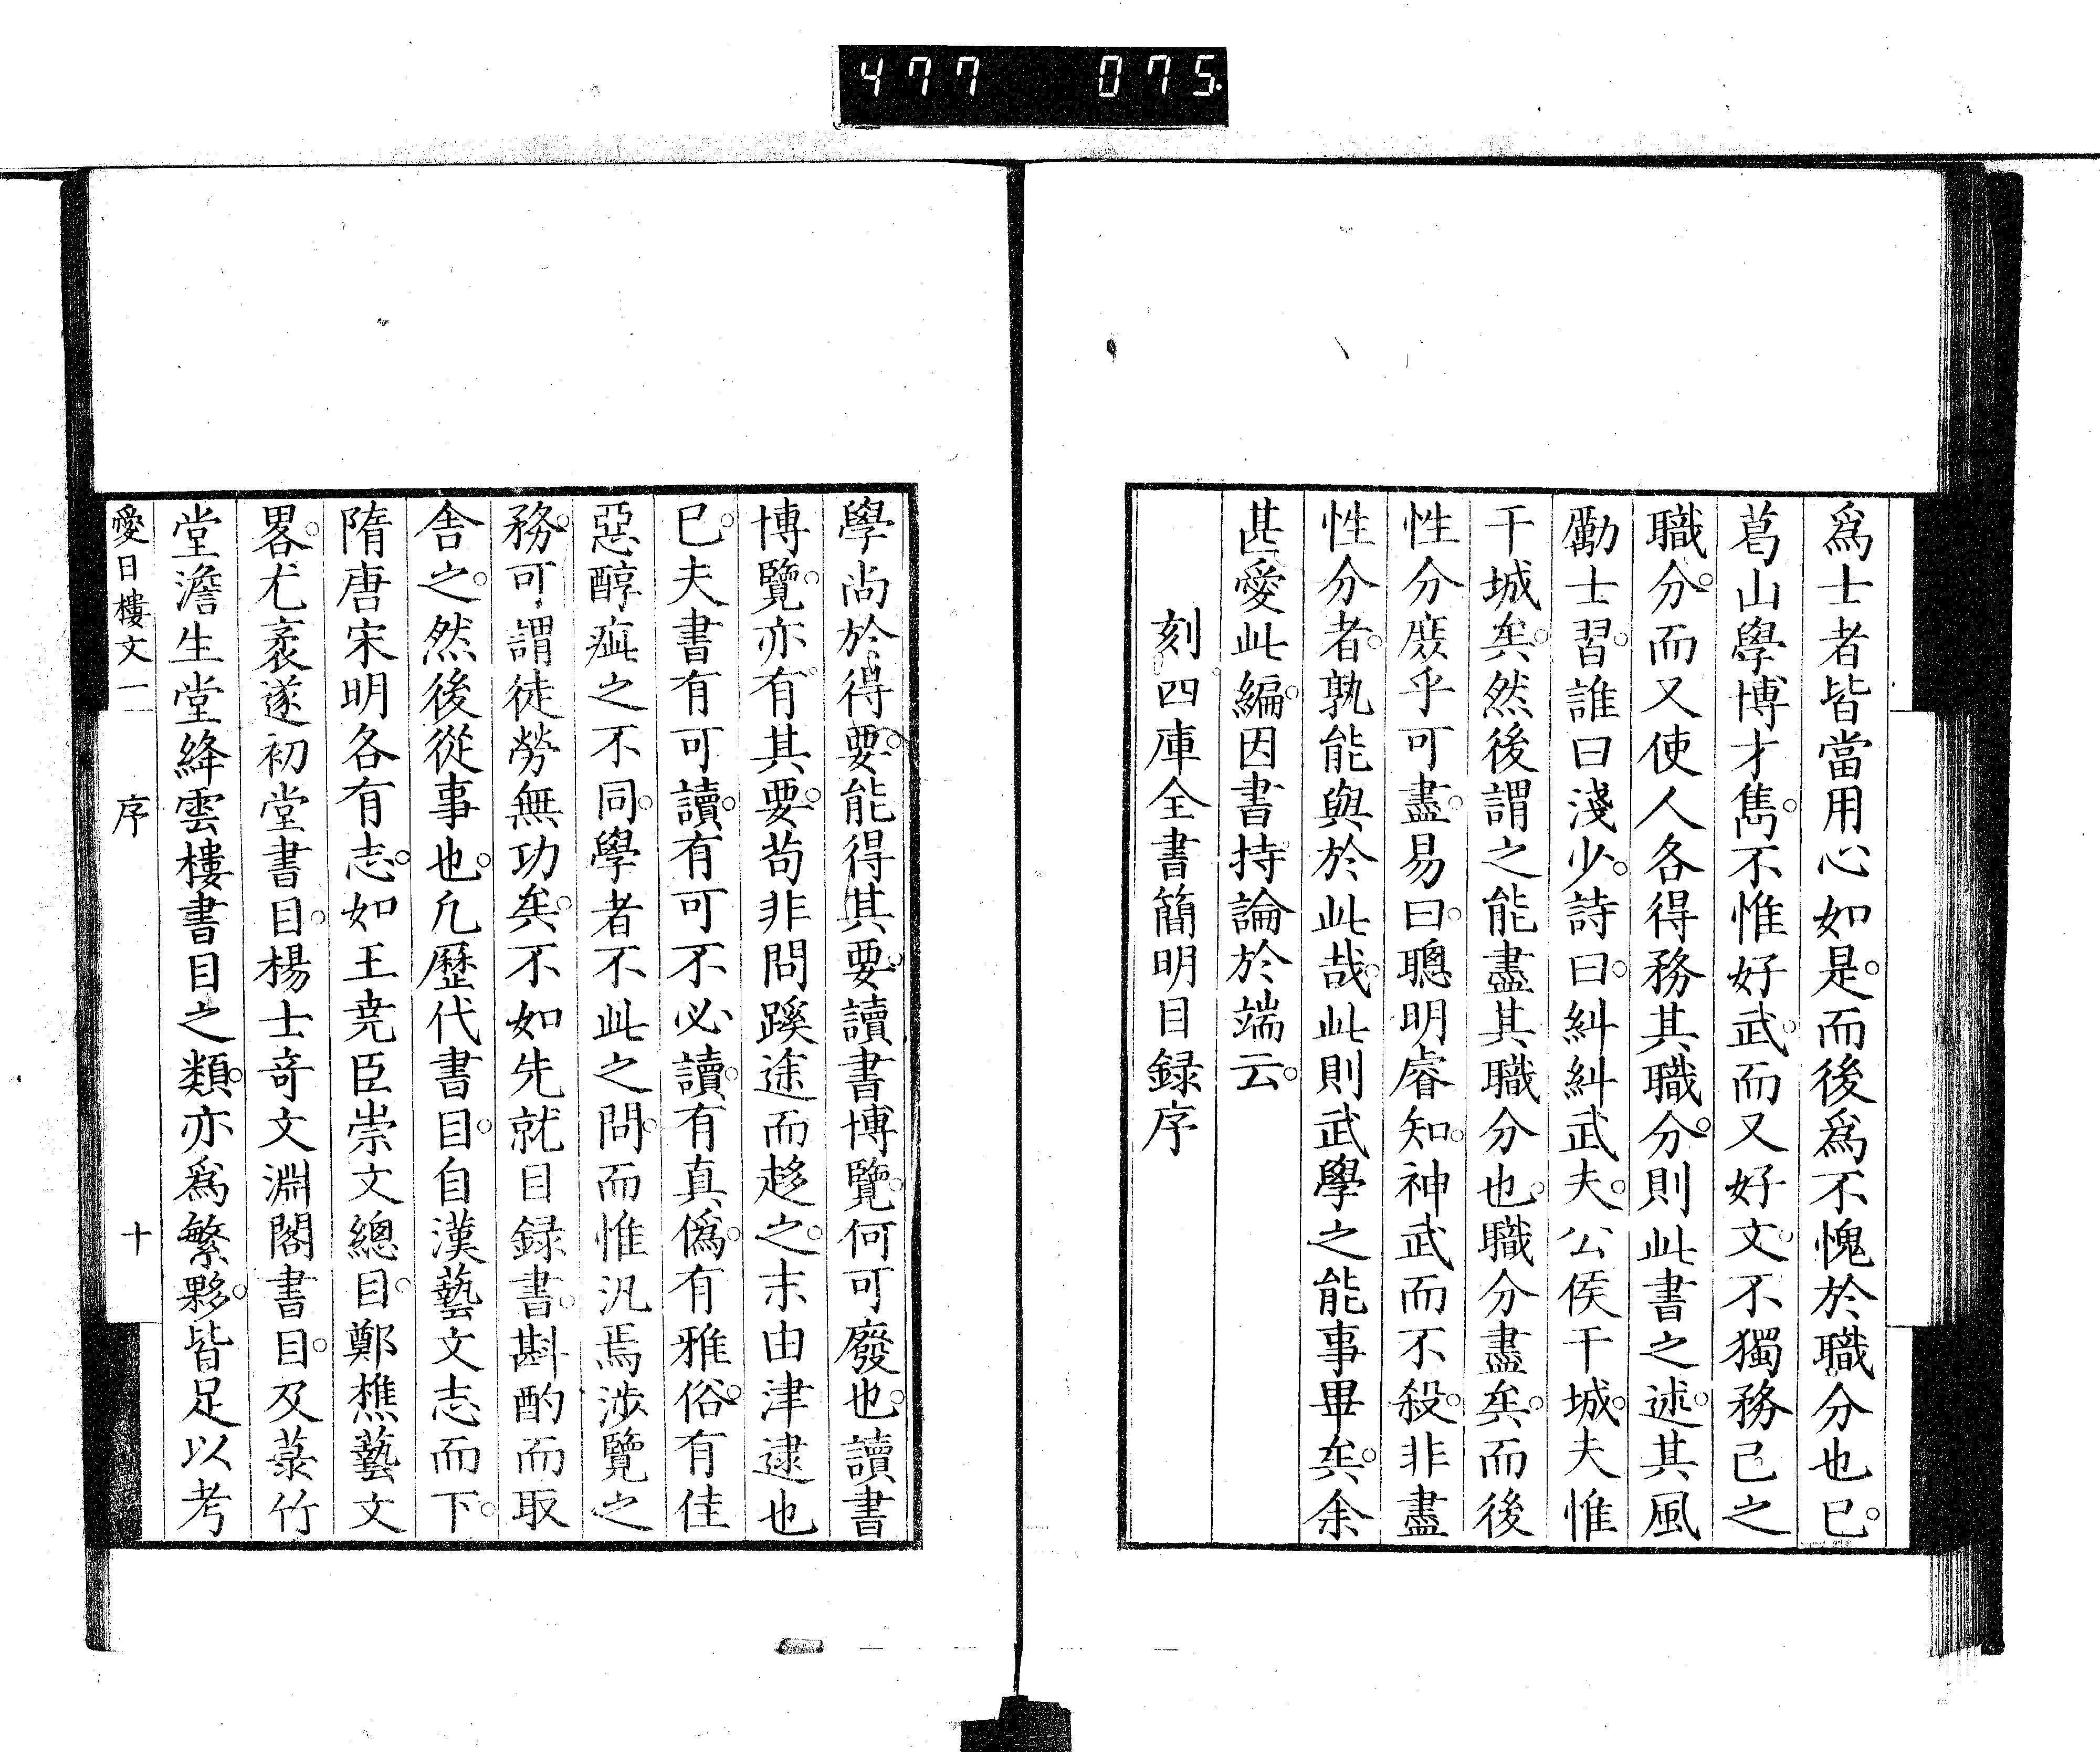 477 075
爲士者皆當用心如是。而後爲不愧於職分也已。
葛山學博才雋。不惟好武。而又好文。不獨務己之
職分。而又使人各得務其職分。則此書之述。其風
勵士習。誰曰淺少。詩曰。糾糾武夫。公侯干城。夫惟
干城矣。然後謂之能盡其職分也。職分盡矣。而後
性分庶乎可盡。易曰。聰明睿知。神武而不殺。非盡
性分者。孰能與於此哉。此則武學之能事畢矣。余
甚愛此編。因書持論於端云。
刻四庫全書簡明目録序
學尚於得要。能得其要。讀書博覽。何可廢也。讀書
博覽。亦有其要。苟非問蹊途而趍之。末由津逮也
已。夫書有可讀。有可不必讀。有真僞。有雅俗。有佳
惡醇疵之不同。學者不此之問。而惟汎焉渉覽之
務。可謂徒勞無功矣。不如先就目録書。斟酌而取
舎之。然後從事也。凢歷代書目。自漢藝文志而下。
隋唐宋明各有志。如王堯臣崇文總目。鄭樵藝文
畧。尤袤遂初堂書目。楊士竒文淵閣書目。及菉竹
堂澹生堂絳雲樓書目之類。亦爲繁夥。皆足以考
愛日樓文一 序 十